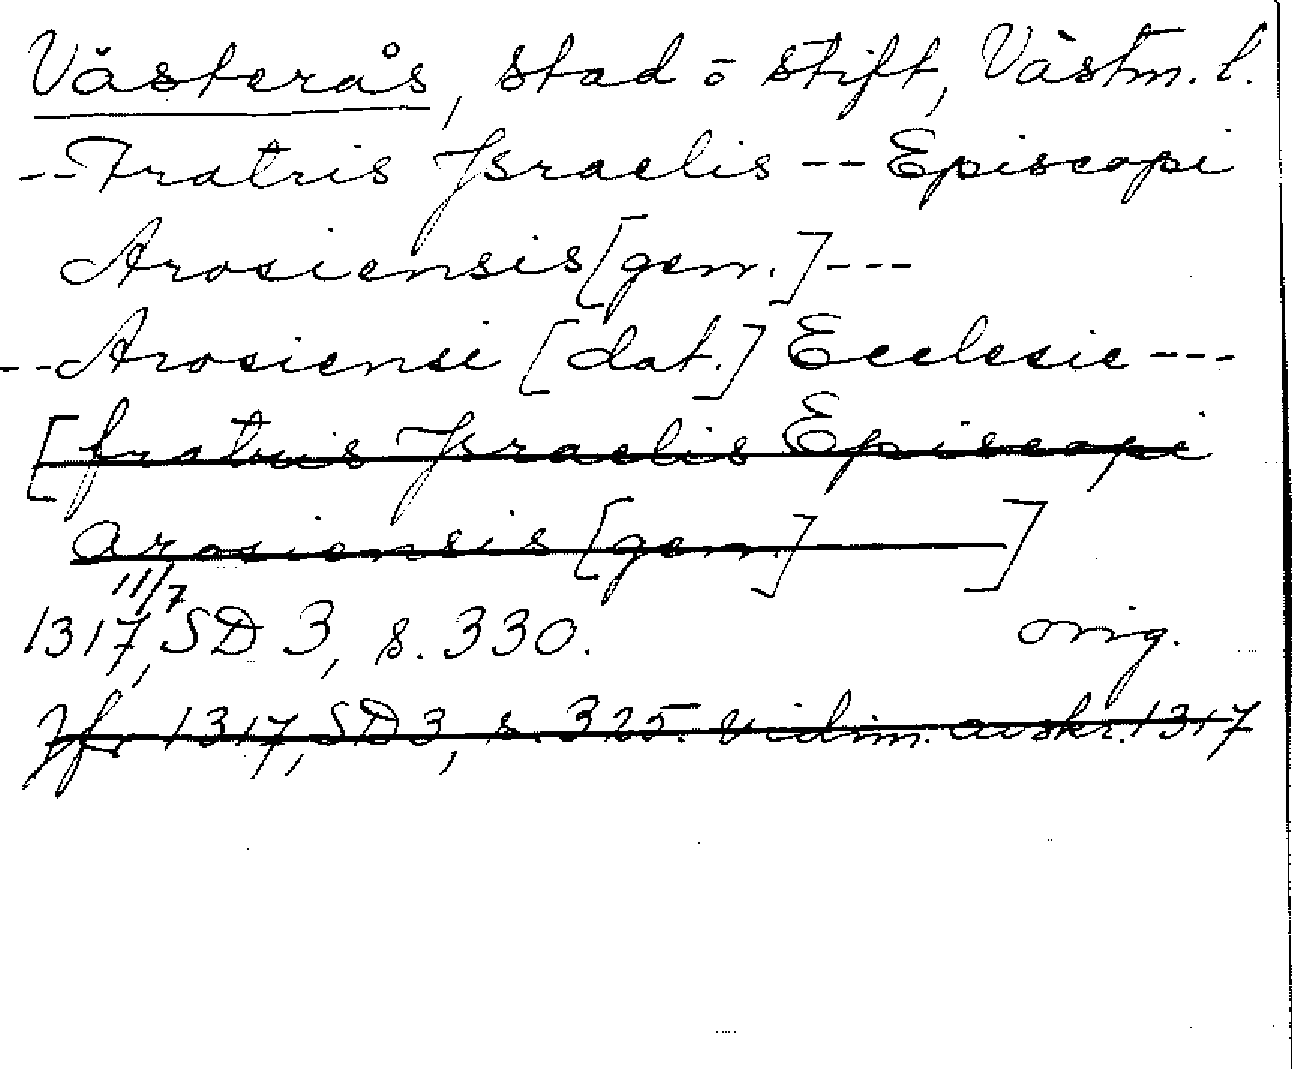 Västerås, stad o stift, Västm. l.
--Fratris Israelis --Episcopi
Arosiensis [gen.]---
--Arosiensi [dat.] Ecclesie---
[fratris Israelis Episcopi
arosiensis [gen.] ]
11/7
1317, SD 3, s. 330. orig.
Jfr 1317, SD 3, s. 325. Vidim. avskr. 1317